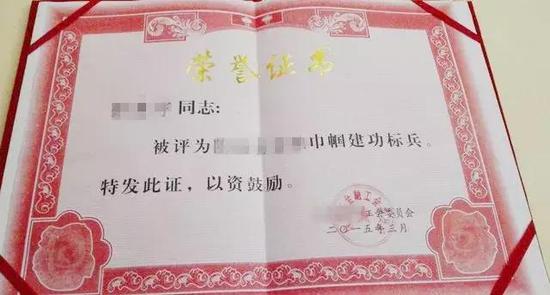 荣誉证书
同志:
被评为 巾帼建功标兵。
特发此证，以资鼓励。
工会委员会
二〇一五年三月